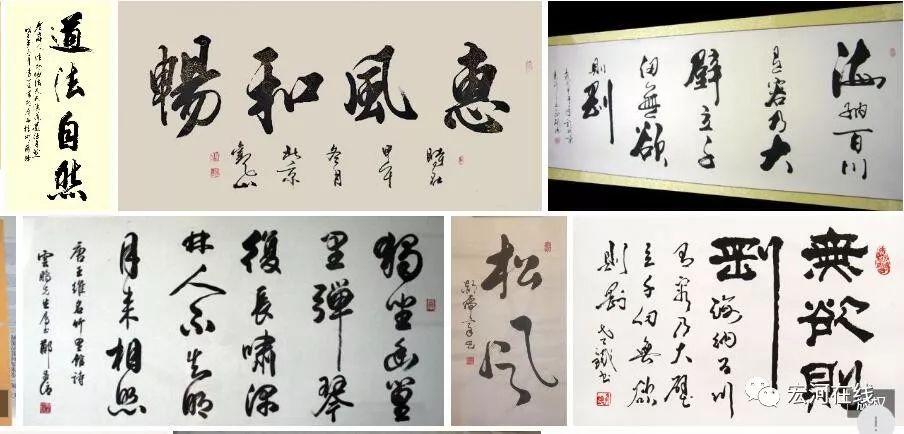 道法自然
惠風和暢
時在
甲午
冬月
北京
海納百川
有容乃大
壁立千
仞無欲
則剛
獨坐幽篁
里彈琴
復長嘯深
林人不知明
月來相照
唐王維名竹里館詩
松風
無欲則
剛
海納百川
有容乃大壁
立千仞無欲
則剛
宏河在线
版权